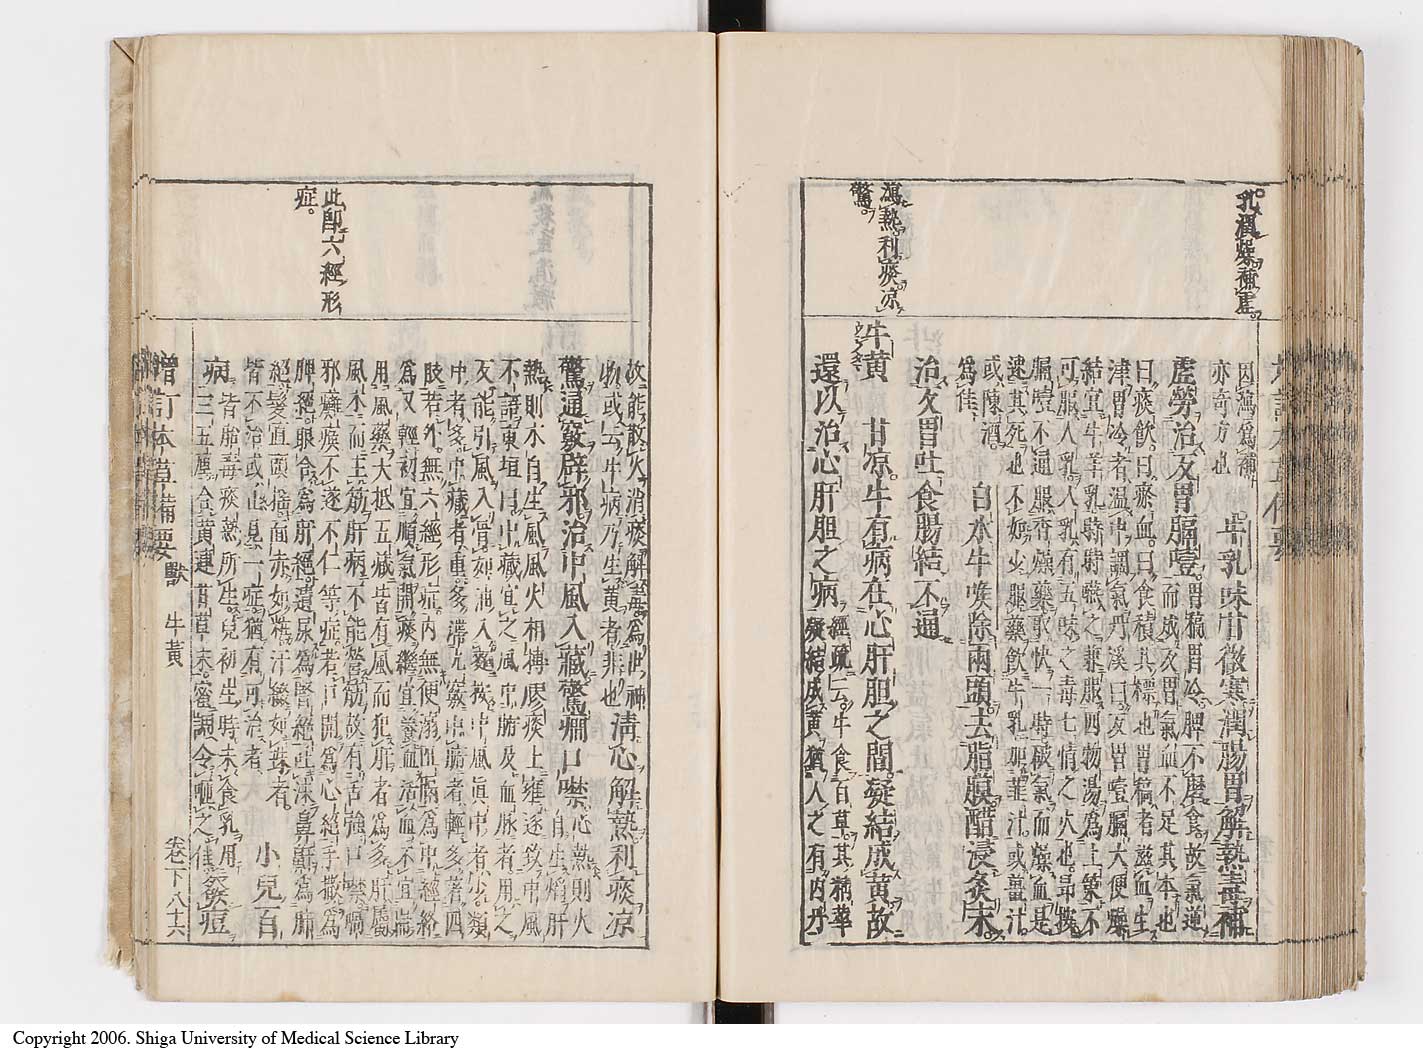 乳潤燥補虛
瀉熱利痰凉
驚
因瀉爲補
亦奇方也
牛乳味甘微寒潤腸胃解熱毒補
虛勞治反胃膈噎胃槁胃冷脾不磨食故氣道
而成反胃氣血不足其本也
曰痰飲曰瘀血曰食積其標也胃槁者滋血生
津胃冷者溫中調氣丹溪曰反胃噎膈大便燥
結宜牛羊乳時時嚥之兼服四物湯爲上策不
可服人乳人乳有五味之毒七情之火也昂按
膈噎不通服香燥藥取快一時破氣而燥血是
速其死也不如少服藥飲牛乳加韮汁或薑汁
或陳酒
爲佳
白水牛喉除兩頭去脂膜醋浸炙末
治反胃吐食腸結不通
牛黃 甘凉牛有病在心肝胆之間凝結成黃故
還以治心肝胆之病經疏云牛食百草其精華
凝結成黃猶人之有内丹
此即六經形
症
故能散火消痰解毒爲世神
物或云牛病乃生黃者非也
清心解熱利痰凉
驚通竅辟邪治中風入臟驚癇口噤心熱則火
自生焰肝
熱則木自生風風火相搏膠痰上壅遂致中風
不語東垣曰中臟宜之風中腑及血脉者用之
反能引風入骨如油入麪按中風眞中者少類
中者多中臟者重多滯九竅中腑者輕多著四
肢若外無六經形症内無便溺阻隔爲中經絡
爲又輕初宜順氣開痰繼宜養血活血不宜耑
用風藥大抵五臟皆有風而犯肝者爲多肝屬
風木而主筋肝病不能營筋故有舌強口噤喎
邪癱瘓不遂不仁等症若口開爲心絕手撒爲
脾絕眼合爲肝絕遺尿爲腎絕吐沫鼻鼾爲肺
絕髮直頭搖面赤如粧汗綴如珠者
皆不治或止見一症猶有可治者
小兒百
病皆胎毒痰熱所生兒初生時未食乳用
三五釐合黃連甘草末蜜調令咂之佳
發痘
增訂本草備要
獸 牛黃
卷下 八十六
Copyright 2006. Shiga University of Medical Science Library